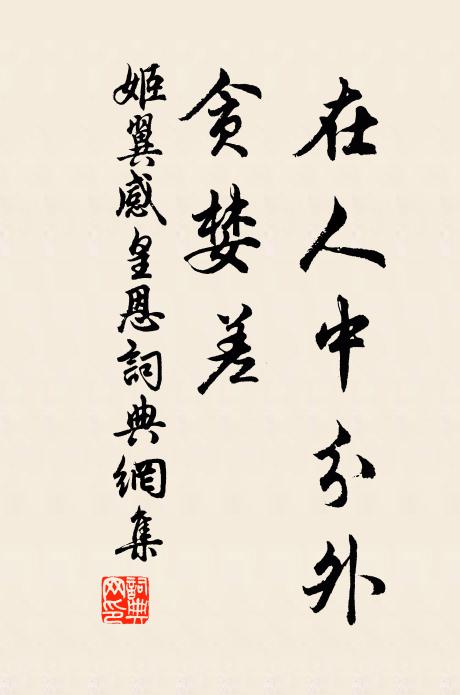 在人中分外
貪婪差
姬翼感皇恩詞典網集
詞典网印